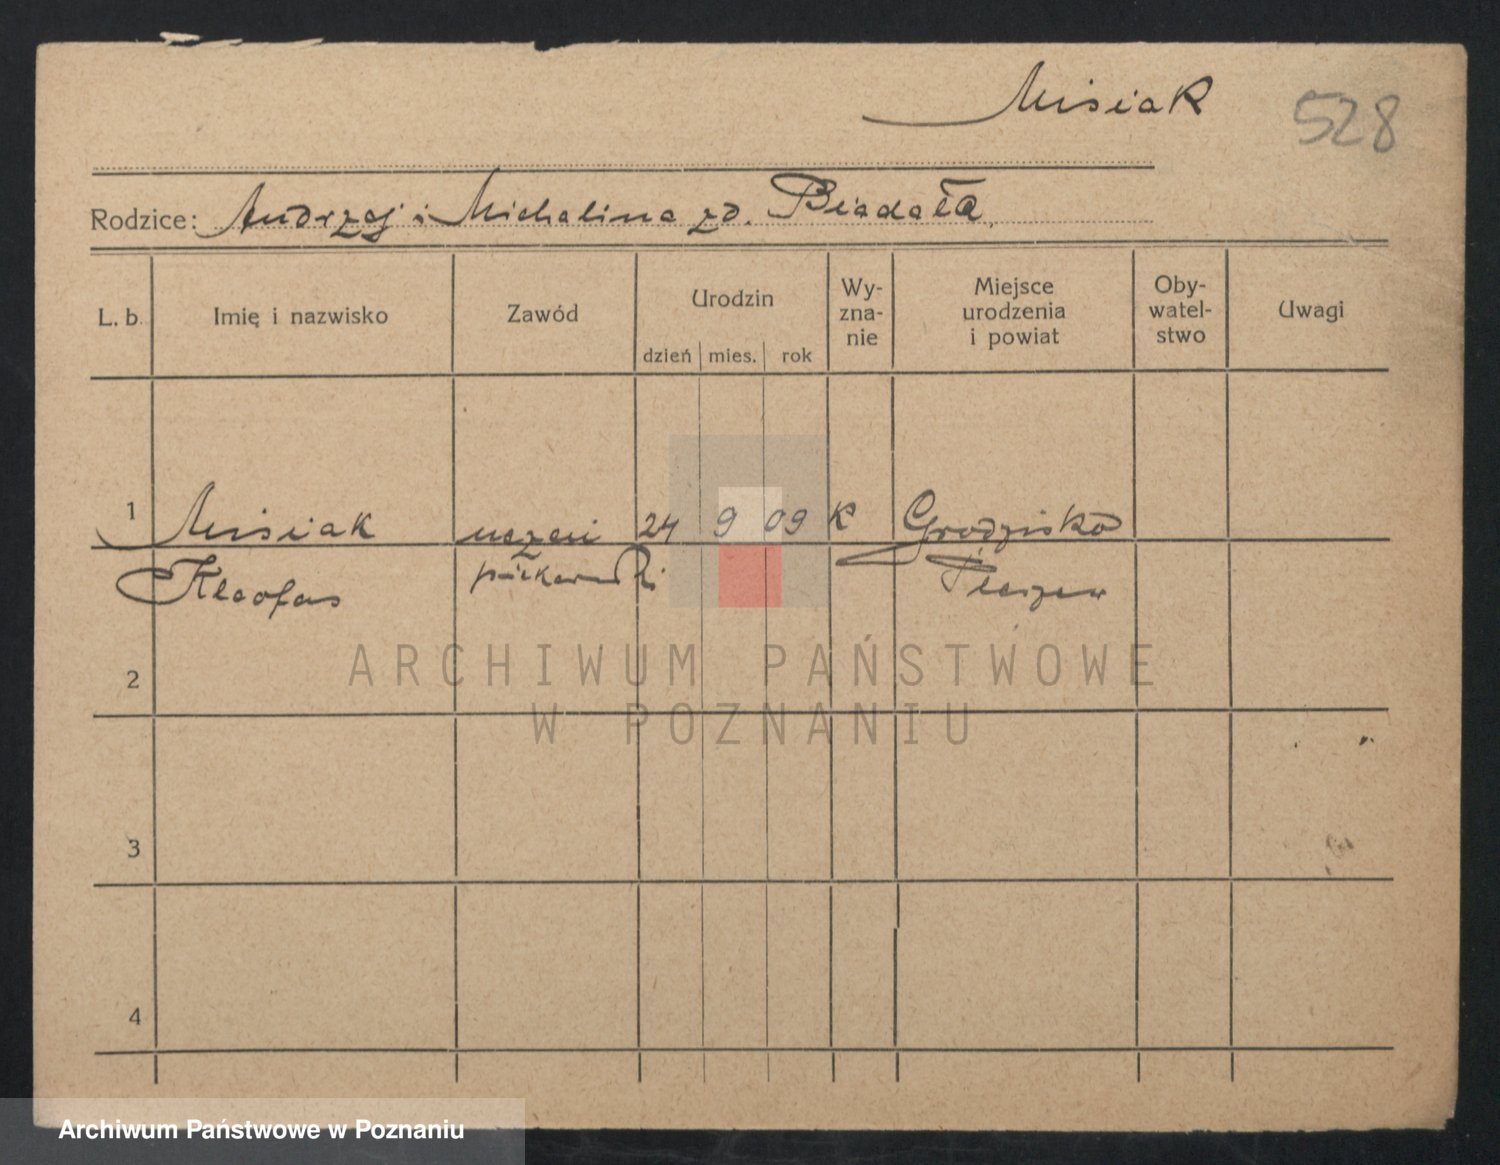 Misiak
528
Rodzice: Andrzej i Michalina zd. Biadała
L. b. Imię i nazwisko Zawód Urodzin dzień mies. rok Wy-zna-nie Miejsce urodzenia i powiat Oby-watel-stwo Uwagi
1 Misiak uczeń 24 9 09 K Grodzisko
Kleofas piekarski Pleszew
2
ARCHIWUM PAŃSTWOWE
W POZNANIU
3
4
Archiwum Państwowe w Poznaniu